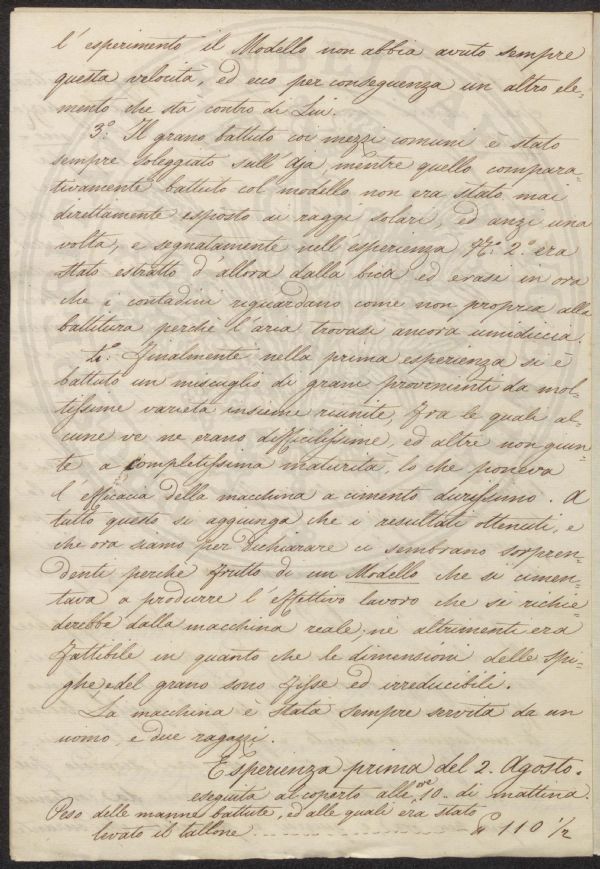 l'esperimento il Modello non abbia avuto sempre
questa velocità, ed ecco per conseguenza un altro ele-
mento che sta contro di Lui.
3.° Il grano battuto coi mezzi comuni è stato
sempre soleggiato sull'Aja, mentre quello compara-
tivamente battuto col modello non era stato mai
direttamente esposto ai raggi solari, ed anzi una
volta, e segnatamente nell'esperienza N.° 2.° era
stato estratto d'allora dalla bica ed erasi in ora
che i contadini riguardano come non propria alla
battitura perchè l'aria trovasi ancora umidiccia.
4.° Finalmente nella prima esperienza si è
battuto un miscuglio di grani provenienti da mol-
tissime varietà insieme riunite fra le quali al-
cune ve ne erano difficilissime, ed altre non giun-
te a completissima maturità, lo che poneva
l'efficacia della macchina a cimento durissimo. A
tutto questo si aggiunga che i resultati ottenuti, e
che ora siamo per dichiarare ci sembrano sorpren-
denti perchè frutto di un Modello che si cimen-
tava a produrre l'effettivo lavoro che si richie-
derebbe dalla macchina reale, nè altrimenti era
fattibile in quanto che le dimensioni delle spi-
ghe e del grano sono fisse ed irreducibili.
La macchina è stata sempre servita da un
uomo, e due ragazzi.
Esperienza prima del 2. Agosto.
eseguita al coperto alle ore 10. di mattina.
Peso delle manne battute, ed alle quali era stato
levato il tallone 110 1/2